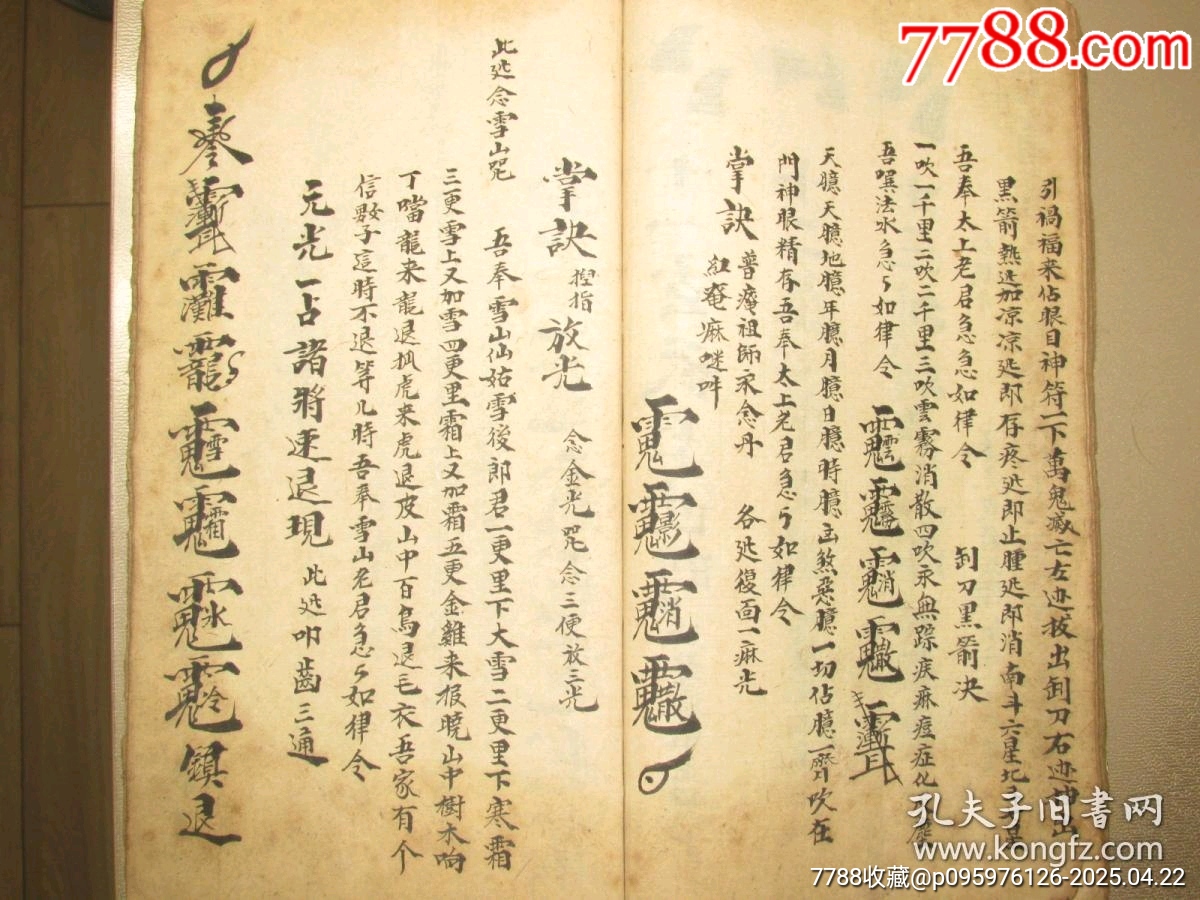 7788.com
引禍福来佔眼目神符一下萬鬼藏亡左迹拔出卸刀右迹
黑箭熱迯加凉凉迯即存疼迯即止腫迯即消南斗六星北
吾奉太上老君急急如律令 卸刀黑箭决
一吹一千里二吹二千里三吹雲霧消散四吹永無踪疾麻痘症化
吾噀法水急々如律令
天臆天臆地臆年臆月臆日臆時臆凶煞惡臆一切佔臆一齊吹在
門神眼精存吾奉太上老君急々如律令
掌訣 普庵祖師永念丹 各迯復面一麻光
紅菴麻咪吽
掌訣 捏指 放光 念金光咒念三便放三光
此迯念雪山咒 吾奉雪山仙姑雪後郎君一更里下大雪二更里下寒霜
三更雪上又加雪四更里霜上又加霜五更金雞来报曉山中樹木响
丁噹龍来龍退执虎来虎退皮山中百鳥退毛衣吾家有个
信數子這時不退等几時吾奉雪山老君急々如律令
元光一占諸將速退現 此迯叩齒三通
鎮退
孔夫子旧書网
www.kongfz.com
7788收藏@p095976126-2025.04.22